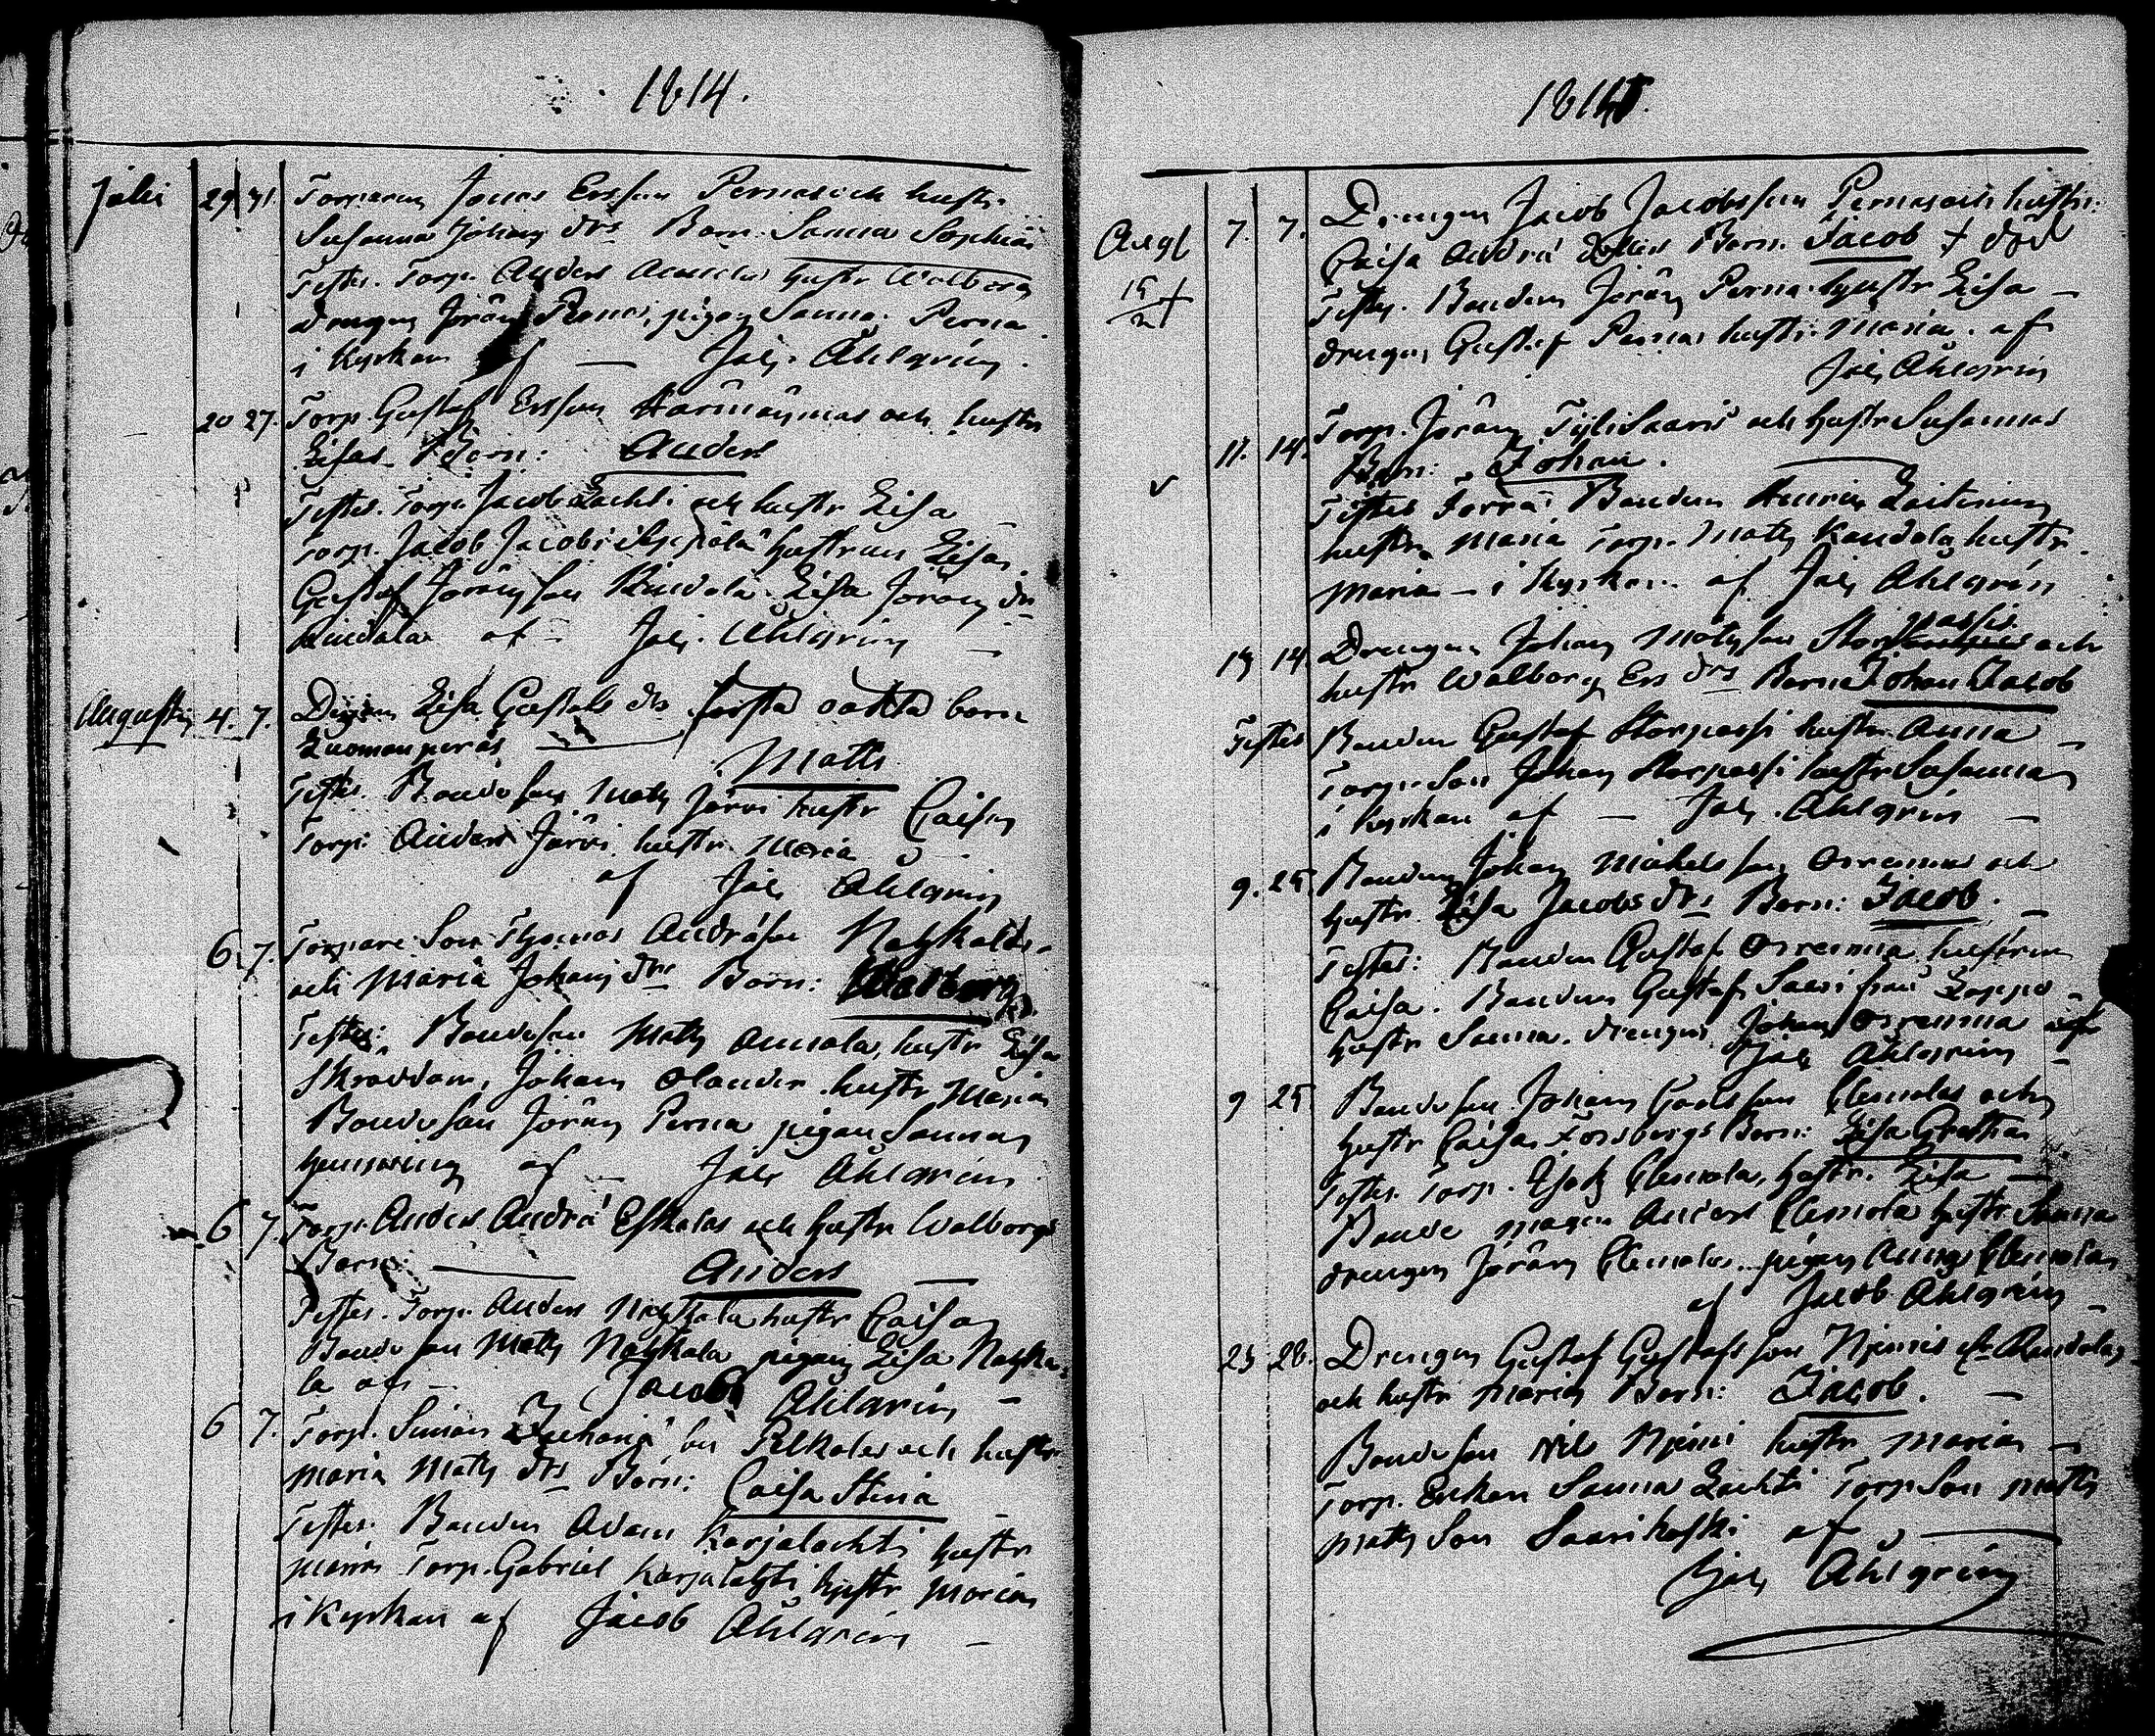 1814.
Julii 29 31. Torparen Jonas Ersson Perna och hustr.
Susanna Johans drs Barn. Sanna Sophia
Testes. Torp. Anders Annala hustr Walborg
drengen Jöran Perna, pigan Sanna Perna
i Kyrkan af — Jac. Ahlgrén.
20 27. Torp. Gustaf Ersson och hustr
Lisas Barn: Anders
Testes. Torp. Jacob Lachti och hustr Lisa
Torp. Jacob Jacobs hustrun Lisa
Gustaf Jörans son Rindala Lisa Jörans dr
Rindala af — Jac. Ahlgrén —
Augusti 4. 7. Lisa Gustafs drs första oäkta barn
Luomanperäs — Matts
Testes. Bondeson Matts Järvi hustr Caisa
Torp: Anders Järvi, hustr. Maria
af Jac Ahlgrén
6. 7. Torpare Son Thomas Andräson
och Maria Johans drs Barn: Walborg
Testes: Bondeson Matts Annala, hustr Lisa
Skreddarn, Johan Olander hustr Maria
Bondeson Jöran Perna pigan Sanna
af — Jac Ahlgrén
6 7. Torp. Anders Andrä Eskolas och hustr Walborgs
Barn: — Anders —
Testes. Torp. Anders hustr Caisa
Bondeson Matts pigan Lisa
la af — Jacob Ahlgrén —
6 7. Torp. Simon Zachariä son Pelkolas och hustr
Maria Matts drs Barn: Caisa Stina
Testes. Bonden Adam Karjalachti hustr
Maria Torp. Gabriel Karjalahti hustr Maria
i Kyrkan af Jacob Ahlgrén —
1814.
Aug 7. 7. Drengen Jacob Jacobsson Pernas och hustr.
Caisa Andrä Barn. Jacob + död
15/2 + Testes. Bonden Jöran Perna hustr Lisa —
drengen Gustaf Pernas hustr. Maria. af
Jac Ahlgrén
11. 14. Torp. Jöran Tylisaari och hustr Susannas
Barn: Johan. —
Testes Bonden Henric
hustr. Maria Torp. Matts Kandola hustr.
Maria — i Kyrkan af Jac Ahlgrén
passis
13 14 Drengen Johan Matsson Stor och
hustr Walborg Ers drs Barn Johan Jacob
Testes Bonden Gustaf Storpassi hustr Anna —
Torpareson Johan Storpassi hustr Susanna
i kyrkan af — Jac. Ahlgrén —
9. 25 Bonden Johan Michelsson Orrenmas och
hustr Lisa Jacobs drs Barn: Jacob. —
Testes: Bonden Gustaf Orrenma hustrun
Caisa. Bonden Gustaf Saari från Lappo
hustr Sanna. drengen Johan Orrenma af
Jac Ahlgrén —
9 25 Bondeson Johan Clemolas och
hustr Caisa Forsbergs Barn: Lisa Gretha
Testes. Torp. Isak Clemola, hustr. Lisa —
Bonde magen Anders Clemola hustr Sanna
drengen Jöran Clemola pigan Anna Clemola
af Jacob Ahlgrén —
23 28. Drengen Gustaf Gustafsson Njemis Randola
och hustr Maria Barn: Jacob. —
Bondeson Nils Njemi hustr Maria —
Torp. Enkan Sanna Lachti Torp. Son Matts
Matts Son Saarikoski af —
Jac Ahlgrén